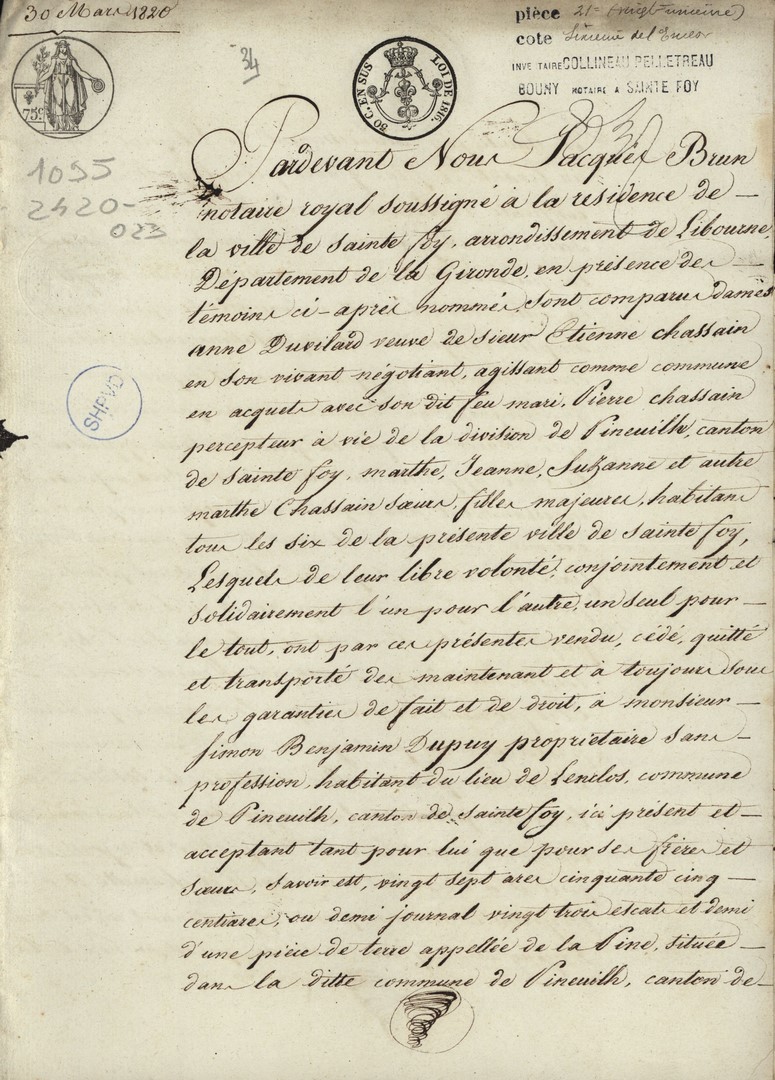 30 Mars 1820
pièce 21e (vingt unième)
cote
INVENTAIRE COLLINEAU PELLETREAU
BOUNY NOTAIRE A SAINTE FOY
34
75c
50 C. EN SUS LOI DE 1816.
1095
2420-
023
SHPVD
Pardevant Nous Jacques Brun
notaire royal soussigné à la residence de —
la ville de Sainte foy, arrondissement de Libourne,
Département de la Gironde, en présence des —
témoins ci-après nommés, sont comparus dames
anne Duvilard veuve de sieur Etienne Chassain
en son vivant négotiant, agissant comme commune
en acquets avec son dit feu mari, Pierre Chassain
percepteur à vie de la division de Pineuilh, canton
de Sainte foy, marthe, Jeanne, Suzanne et autre
marthe Chassain sœurs, filles majeures, habitans
tous les six de la présente ville de Sainte foy,
Lesquels de leur libre volonté, conjointement et
solidairement l'un pour l'autre, un seul pour —
le tout, ont par ces présentes vendu, cédé, quitté
et transporté des maintenant et à toujours sous
les garanties de fait et de droit, à monsieur —
Simon Benjamin Dupuy propriétaire sans —
profession, habitant du lieu de Lenclos, commune
de Pineuilh, canton de Sainte foy, ici présent et —
acceptant tant pour lui que pour ses frères et
sœurs, Savoir est, vingt sept ares cinquante cinq —
centiares, ou demi journal vingt trois escats et demi
d'une pièce de terre appellée de la Pine, située —
dans la ditte commune de Pineuilh, canton de —